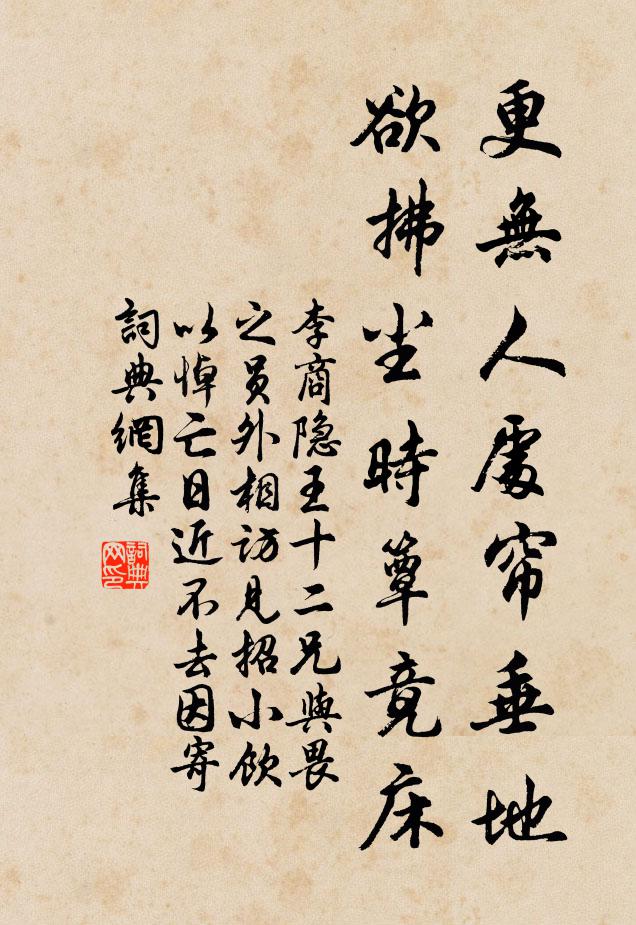 更無人處帘垂地
欲拂尘時簟竟床
李商隐王十二兄與畏
之員外相訪見招小飲
以悼亡日近不去因寄
詞典網集
詞典
网印